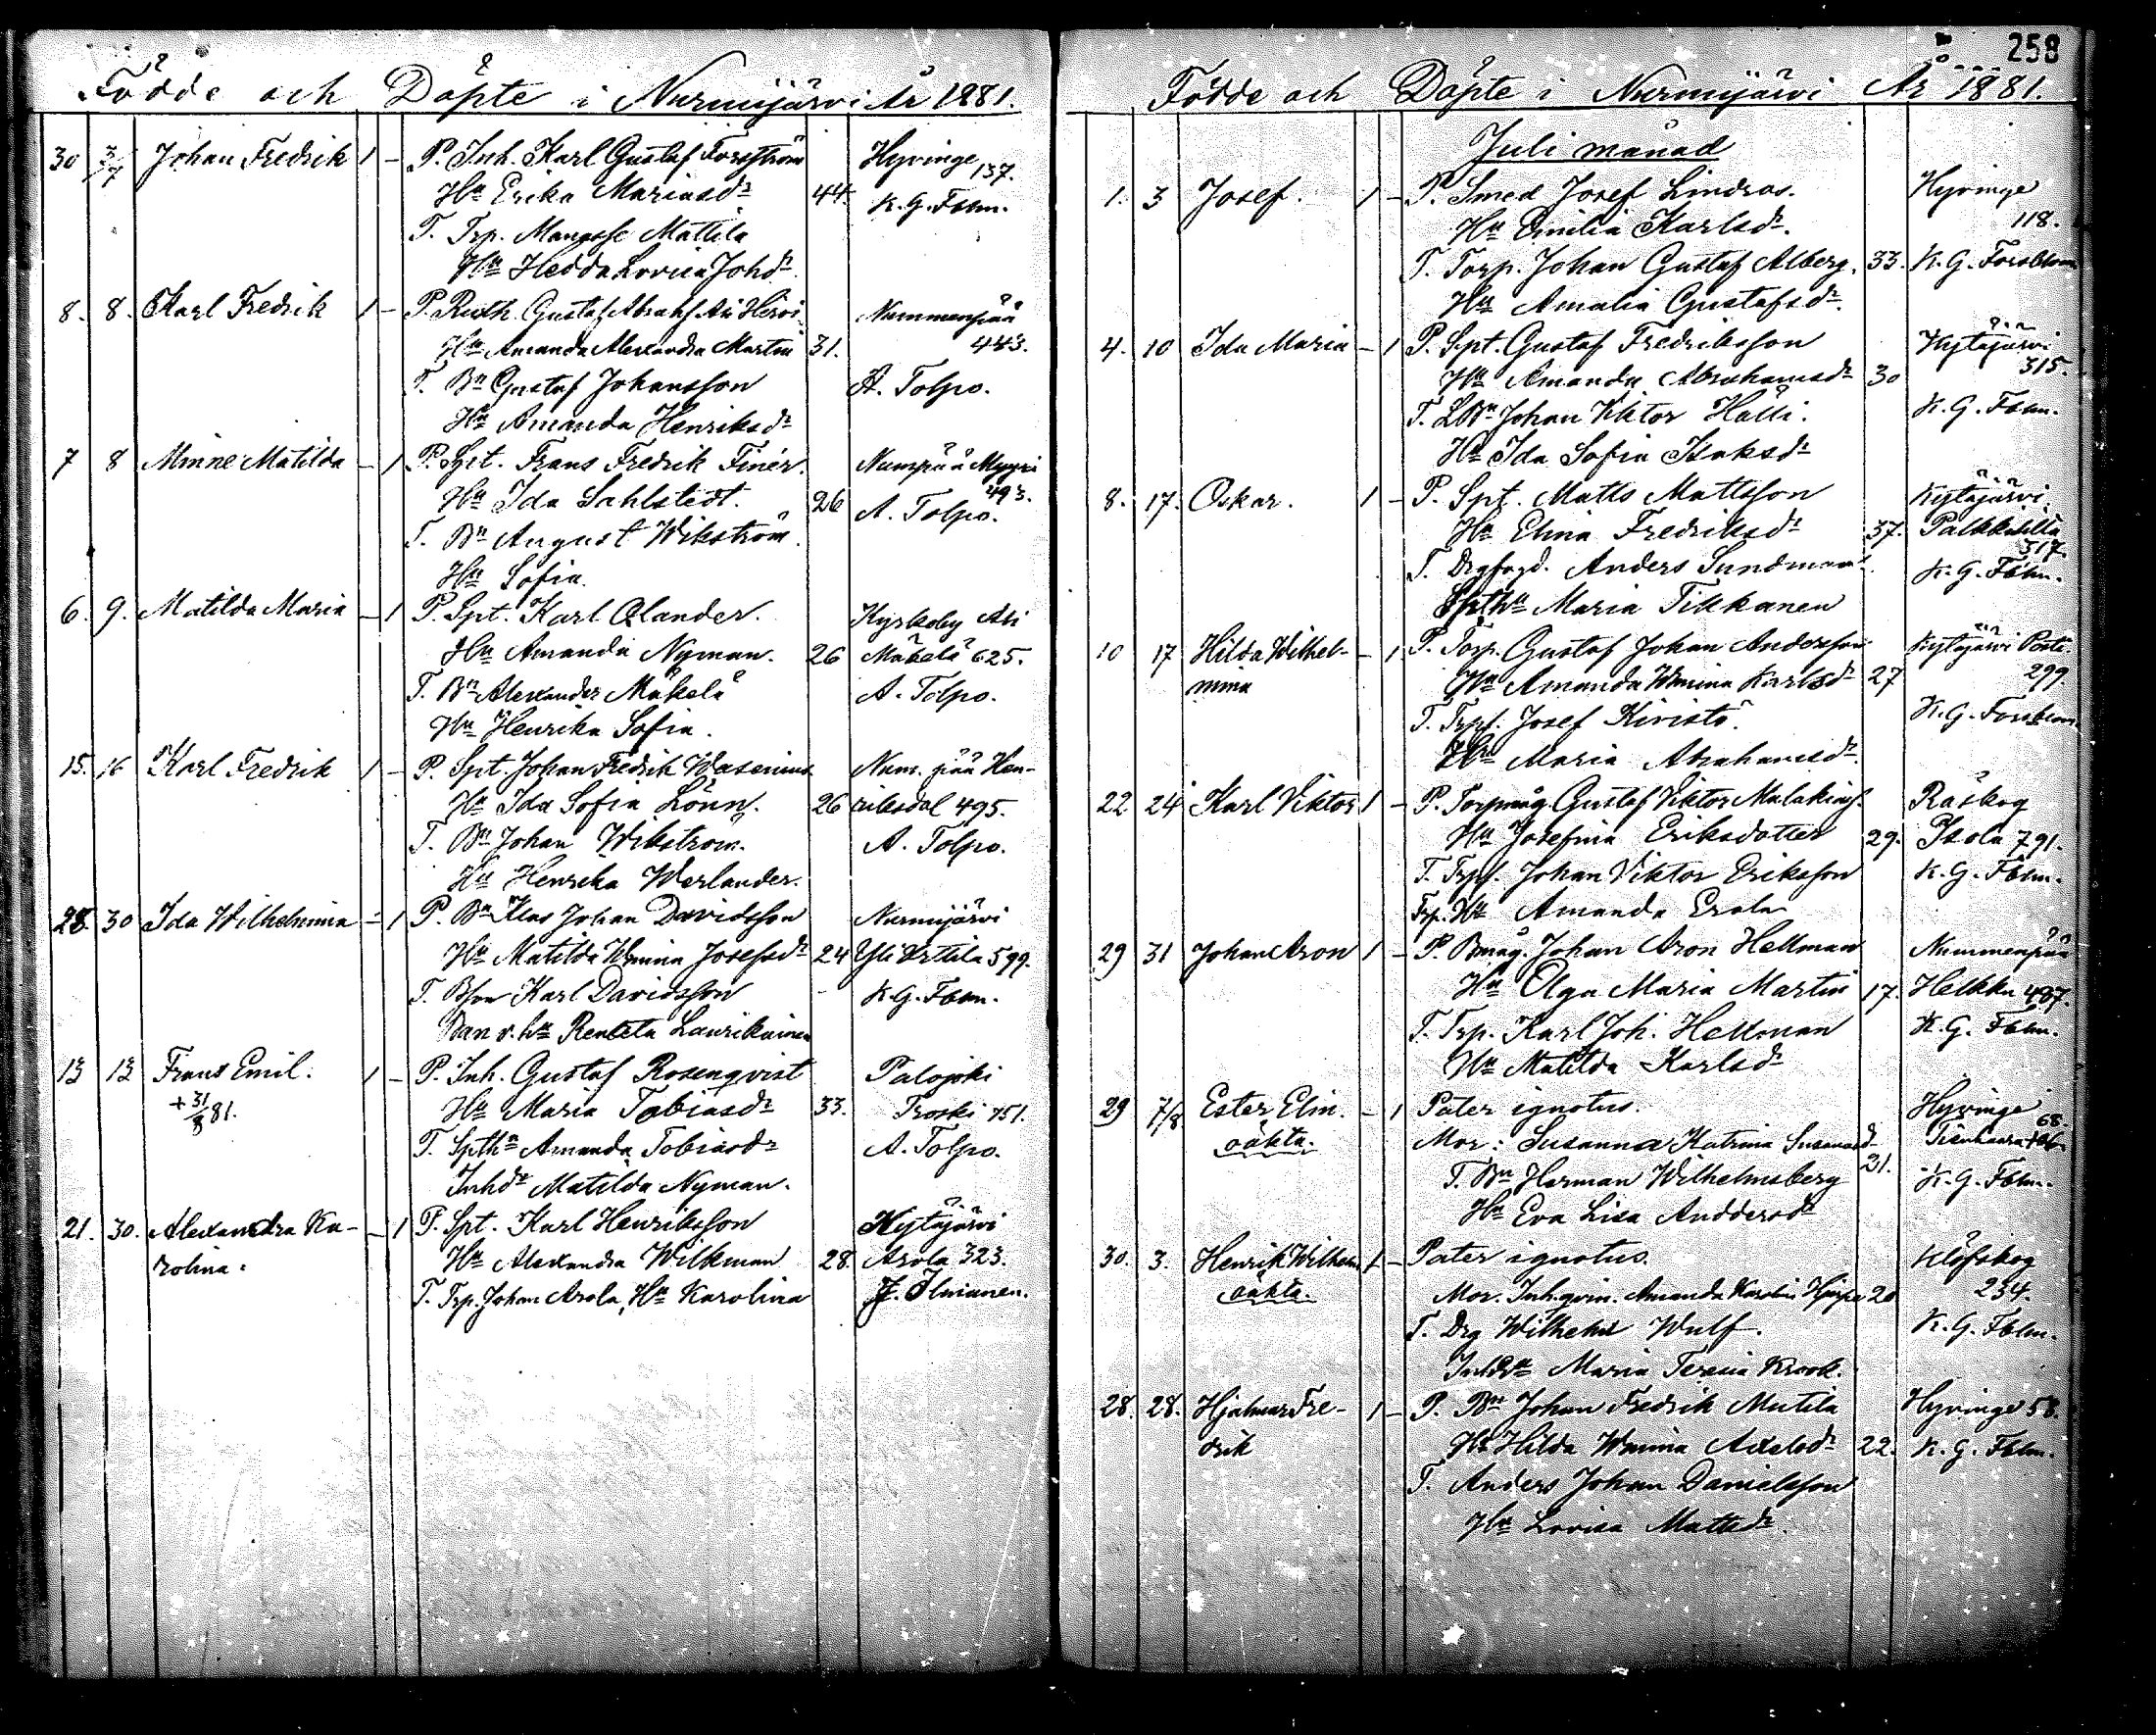 Födde och Döpte i Nurmijärvi År 1881.
30 3/7 Johan Fredrik 1 - P. Inh. Karl Gustaf Forsström Hyvinge 137.
Hu Erika Mariasdr 44. K. G. Fblm.
T. Trp. Mangosse Mattila
Hu Hedda Lovisa Johdr
8. 8. Karl Fredrik 1 - P. Rusth. Gustaf Abrahf. Ali Hirvi Nummenpää
Hu Amanda Alexandra Martin 31. 443.
T. Bn Gustaf Johansson A. Tolpo.
Hu Amanda Henriksdr
7 8 Minne Matilda - 1 P. Spt. Frans Fredrik Finér. Numpää Myyri
Hu Ida Sahlstedt. 26 493. A. Tolpo.
T. Bn August Wikström.
Hu Sofia.
6. 9. Matilda Maria - 1 P. Spt. Karl Olander. Kyrkoby Ali
Hu Amanda Nyman. 26 Mäkelä 625.
T. Bn Alexander Mäkelä A. Tolpo.
Hu Henrika Sofia.
15. 16 Karl Fredrik 1 - P. Spt. Johan Fredrik Wasenius Num. pää Hen-
Hu Ida Sofia Lönn. 26 riksdal 495.
T. Bn Johan Wikström. A. Tolpo.
Hu Henrika Werlander.
28. 30 Ida Wilhelmina - 1 P. Bn Klas Johan Davidsson Nurmijärvi
Hu Matilda Wmina Josefsdr 24 Yli Uttila 599.
T. Bson Karl Davidsson - K. G. Fblm.
Ban v. hu Renceta Laurikainen
13 13 Frans Emil. 1 - P. Inh. Gustaf Rosenqvist Palojoki
+ 31/8 81. Hu Maria Tobiasdr 33. Troski 751.
T. Spthu Amanda Tobiasdr A. Tolpo.
Inhdr Matilda Nyman.
21. 30. Alexandra Ka- - 1 P. Spt. Karl Henriksson Kytäjärvi
rolina. Hu Alexandra Wilkman 28. Arola 323.
T. Trp. Johan Arola, Hu Karolina F. Elmianen.
258
Födde och Döpte i Nurmijärvi År 1881.
Juli månad
1. 3 Josef. 1 - P. Smed Josef Lindros. Hyvinge
Hu Emilia Karlsdr. 118.
T. Torp. Johan Gustaf Alberg. 33. K. G. Forsblom
Hu Amalia Gustafsdr.
4. 10 Ida Maria - 1 P. Spt. Gustaf Fredriksson Kytäjärvi
Hu Amanda Abrahamsdr 30 315.
T. LBn Johan Viktor Hälli. K. G. Fblm.
Hu Ida Sofia Isaksdr
8. 17. Oskar. 1 - P. Spt. Matts Mattsson Kytäjärvi
Hu Elina Fredriksdr 37. Palkkisilta 317.
T. Drgfogd. Anders Sundman K. G. Fblm.
Spthu Maria Tikkanen
10 17 Hilda Wilhel- - 1 P. Torp. Gustaf Johan Andersson Kytäjärvi Posti
mina Hu Amanda Wmina Karlsdr 27 299.
T. Trpf. Josef Kivistö. K. G. Forsblom
Hu Maria Abrahamsdr.
22 24 Karl Viktor 1 - P. Torpmåg Gustaf Viktor Malakiasf. Råskog
Hu Josefina Eriksdotter 29. Isola 791.
T. Trpf. Johan Viktor Eriksson K. G. Fblm.
Trp. Hu Amanda Erola
29 31 Johan Aron 1 - P. Bmåg. Johan Aron Hellman Nummenpää
Hu Olga Maria Martin 17. Helkka 487.
T. Trp. Karl Joh. Hellman K. G. Fblm.
Hu Matilda Karlsdr
29 7/8. Ester Elin. - 1 Pater ignotus. Hyvinge 68.
oäkta. Mor: Susanna Katrina Susannasdr
21.
T. Bn Herman Wilhelmsberg K. G. Fblm.
Hu Eva Lisa Anddersdr
30. 3. Henrik Wilhelm 1 - Pater ignotus. Klöfskog
oäkta. Mor. Inh.qvin. Amanda Karolin Hjerpe 20 234.
T. Drg Wilhelm Wulf. K. G. Fblm.
Maria Teresia Krook.
28. 28. Hjalmar Fre- 1 - P. Bn Johan Fredrik Mutila Hyvinge 58.
drik Hu Hilda Wmina Axelsdr 22. K. G. Fblm.
T. Anders Johan Danielsson
Hu Lovisa Mattsdr.